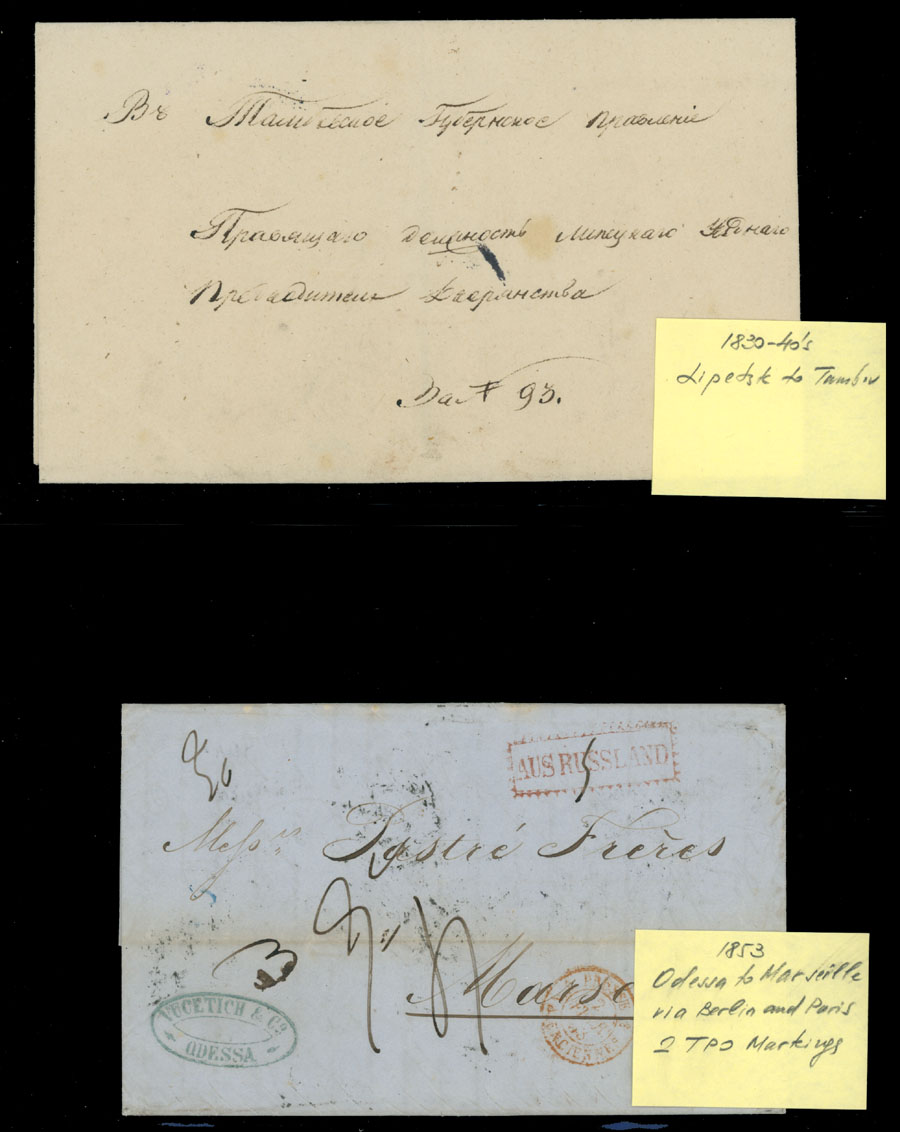 Въ Тамбовское Губернское Правленіе
Правящаго должность Липецкаго Уѣзнаго
Предводителя Дворянства
За № 93.
1830-40's
Lipetsk to Tambov
AUS RUSSLAND
Mess.rs Pastré Frères
3
Marse
VUCETICH & Co.
ODESSA
1853
Odessa to Marseille
via Berlin and Paris
2 TPO Markings